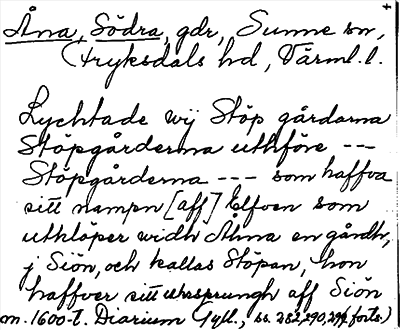 Åna, Södra, gdr, Sunne sn,
Fryksdals hd, Värml. l.
Lychtade wij Stöp gårdarna
Stöpgårderna uthföre ---
Stöpgårderna --- som haffva
sitt nampn [aff] Elfven som
uthlöper widh Åhna en gårdh,
j Siön, och kallas Stöpan, hon
haffver sitt uhrsprungh aff Siön
m. 1600-t. Diarium Gyll., ss. 282, 290, 292 forts.)